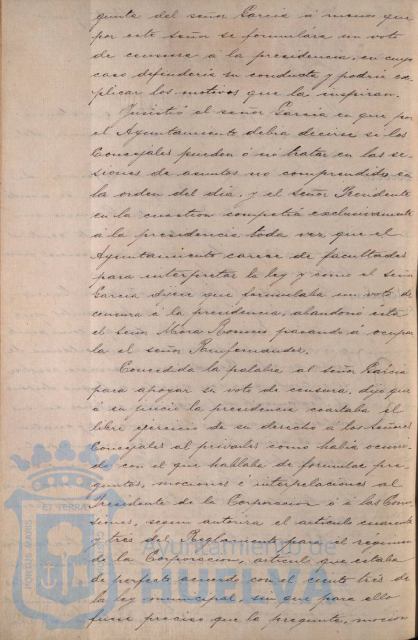 gunta del señor Garcia á menos que
por este señor se formulára un voto
de censura á la presidencia, en cuyo
caso defenderia su conducta y podria es-
plicar los motivos que la inspiran.
Insistió el señor Garcia en que por
el Ayuntamiento debia decirse si los
Concejales pueden ó no tratar en las se-
siones de asuntos no comprendidos en
la orden del dia, y el señor Presidente
en la cuestion competia exclusivamente
á la presidencia toda vez que el
Ayuntamiento carece de facultades
para interpretar la ley y como el señor
Garcia dijera que formulaba un voto de
censura á la presidencia, abandonó esta
el señor Mora Romero pasando á ocupar
la el señor
Concedida la palabra al señor Garcia
para apoyar su voto de censura, dijo que
á su juicio la presidencia coartaba el
libre ejercicio de su derecho á los Señores
Concejales al privarles como habia ocurri-
do con el que hablaba de formular pre-
guntas, mociones ó interpelaciones al
Presidente de la Corporacion ó á las Comi-
siones, segun autoriza el articulo cuarenta
y tres del Reglamento para el regimen
de la Corporacion, articulo que estaba
de perfecto acuerdo con el ciento tres de
la ley municipal, sin que para ello
fuese preciso que la pregunta, mocion
PORTUS MARIS ET TERRAE
Ayuntamiento de
HUELVA